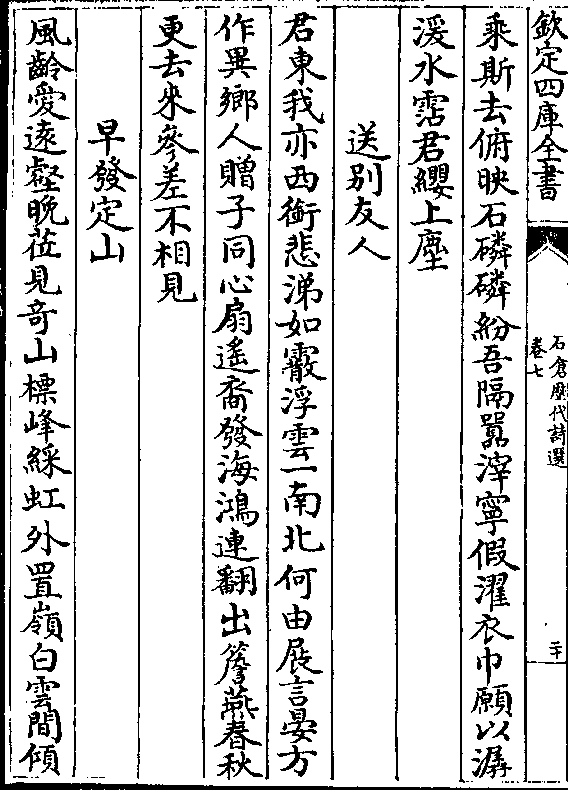 欽定四庫全書
石倉歷代詩選
卷七
二十
乘斯去俯映石磷磷紛吾隔囂滓寧假濯衣巾願以潺
湲水霑君纓上塵
送别友人
君東我亦西銜悲涕如霰浮雲一南北何由展言宴方
作異鄉人贈子同心扇遙裔發海鴻連翻出簷燕春秋
更去來參差不相見
早發定山
夙齡愛遠壑晚莅見奇山標峰綵虹外置嶺白雲間傾